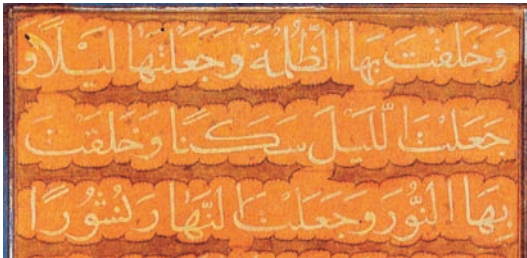 وَخَلَقْتَ بِهَا الظُّلْمَةَ وَجَعَلْتَهَا لَيْلًا وَ
جَعَلْتَ الَّليْلَ سَكَنًا وَخَلَقْتَ
بِهَا النُّورَ وَجَعَلْتَ النَّهَارَ نُشُورًا